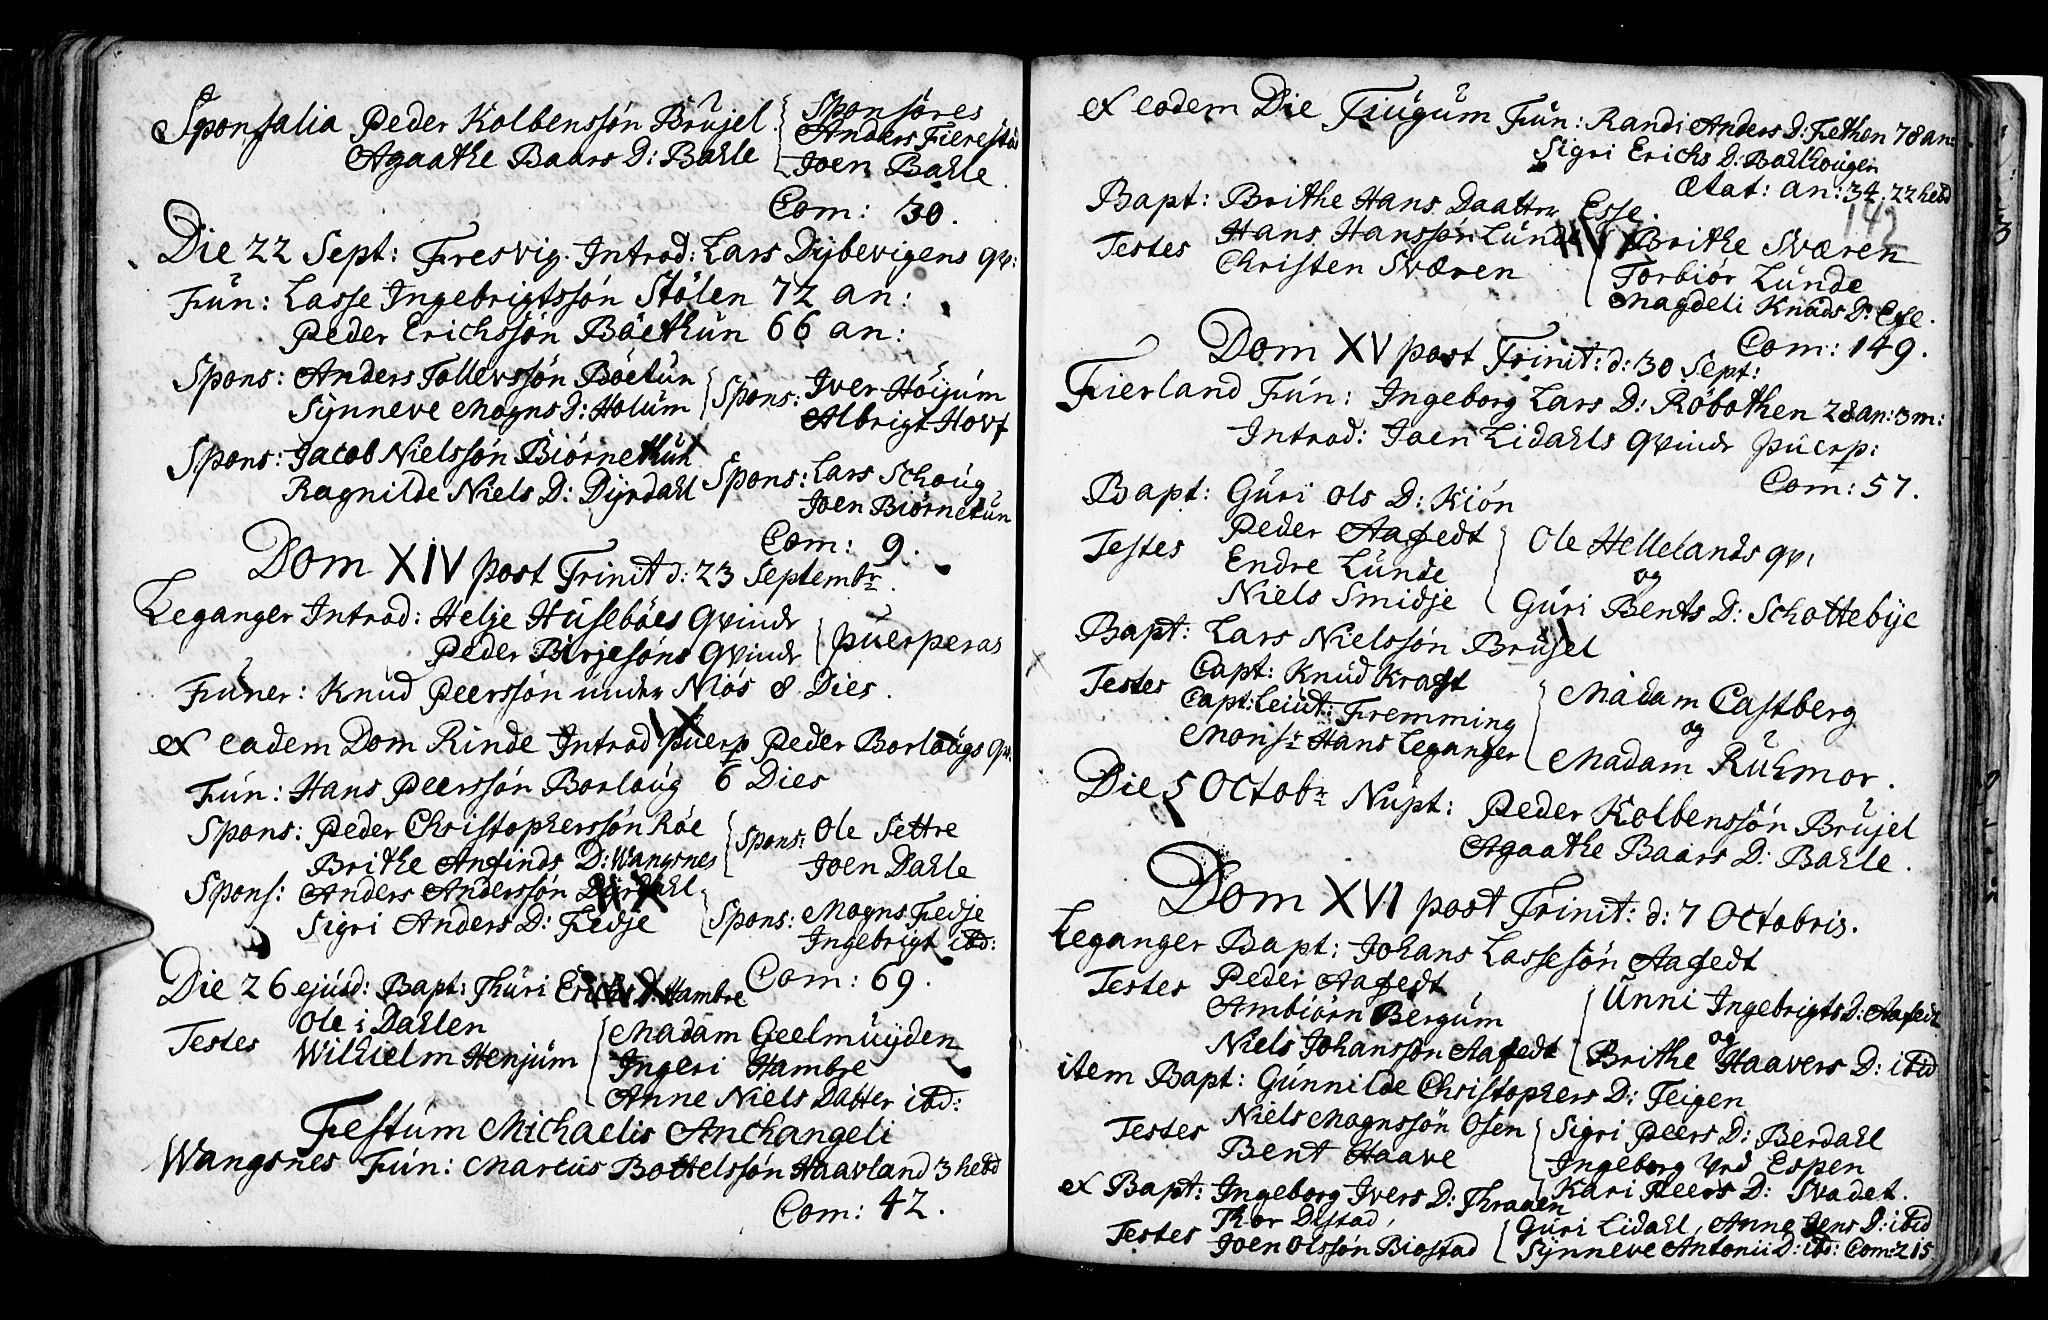 Sponsalia Peder Kolbenssön Brujel Sponsores
Anders Fierestad
Agaathe Baars D: Bahle Joen Bahle
Com: 30.
Die 22 Sept: Fresvig. Introd: Lars Dybevigens qv:
Fun: Lasse Ingebrigtssön Stölen 72 an:
Peder Erichssön Böethun 66 an:
Spons: Anders Tollevssön Böetun Spons: Iver Höijum
Synneve Mogns D: Holum Albrigt Hovf
Spons: Jacob Nielssön Biörnethun Spons: Lars Schoug
Ragnilde Niels D: Dyrdahl Joen Biörnetun
Com: 9.
Dom XIV post Trinit d: 23 Septembr.
Leganger Introd: Helje Huseböes Qvindr
Peder Birjesöns Qvindr puerperas
Funer: Knud Peerssön under Niös 8 Dies.
et eadem Dom Rinde Introd puerp Peder Borlougs qv:
Fun: Hans Peerssön Borloug 6 Dies
Spons: Peder Christopherssön Röe Spons: Ole Settre
Brithe Anfinds D: Wangsnes Joen Dahle
Spons: Anders Anderssön Dyrdahl
Sigri Anders D: Fedje Spons: Mogns Fedje
Ingebrigt ibd:
Com: 69.
Die 26 ejusd: Bapt: Thuri Erichs D: Hambre
Testes Ole i Dahlen Madam Geelmuyden
Wilhielm Henjum Ingeri Hambre
Anne Niels Datter ibd:
Festum Michaelis Archangeli
Wangsnes Fun: Marcus Bottelssön Haavland 3 hebd
Com: 42.
et eodem Die Tiugum Fun: Randi Anders D: Fethen 78 an:
Sigri Erichs D: Bahlhougen
Ætat: an: 34. 22 hebd
142
Bapt: Brithe Hans Daatter Esse.
Testes Hans Hanssön Lunde Brithe Sværen
Christen Sværen Torbiör Lunde
Magdeli Knuds D: Esse.
Com: 149.
Dom XV post Trinit: d: 30 Sept:
Fierland Fun: Ingeborg Lars D: Röbothen 28 an: 3 m:
Introd: Joen Lidahls Qvindr puerp:
Com: 57.
Bapt: Guri Ols D: Kiön
Testes Peder Aafedt Ole Hellelands qv:
Endre Lunde og
Niels Smidje Guri Bents D: Schottebye
Bapt: Lars Nielssön Brujel
Testes Capt: Knud Kraft Madam Castberg
Capt: Leiut: Fremming og
Monsr Hans Leganger Madam Ruhmor.
Die 5 Octobr Nupt: Peder Kolbenssön Brujel
Agaathe Baars D: Bahle.
Dom XVI post Trinit: d: 7 Octobris.
Leganger Bapt: Johans Lassesön Aafedt
Testes Peder Aafedt Unni Ingebrigts D: Aafedt
Ambiörn Bergum og
Niels Johanssön Aafedt Brithe Haavers D: ibid
item Bapt: Gunnilde Christophers D: Teigen
Testes Niels Mognssön Osen Sigri Peers D: Berdahl
Bent Haave Ingeborg Vrd Espen
Kari Peers D: Svadet.
et Bapt: Ingeborg Ivers D: Thraaen
Testes Thor Destad, Guri Lidahl, Anne Jens D: ibid
Joen Olssön Biostad Synneve Antonii D: ibd: Com: 215.